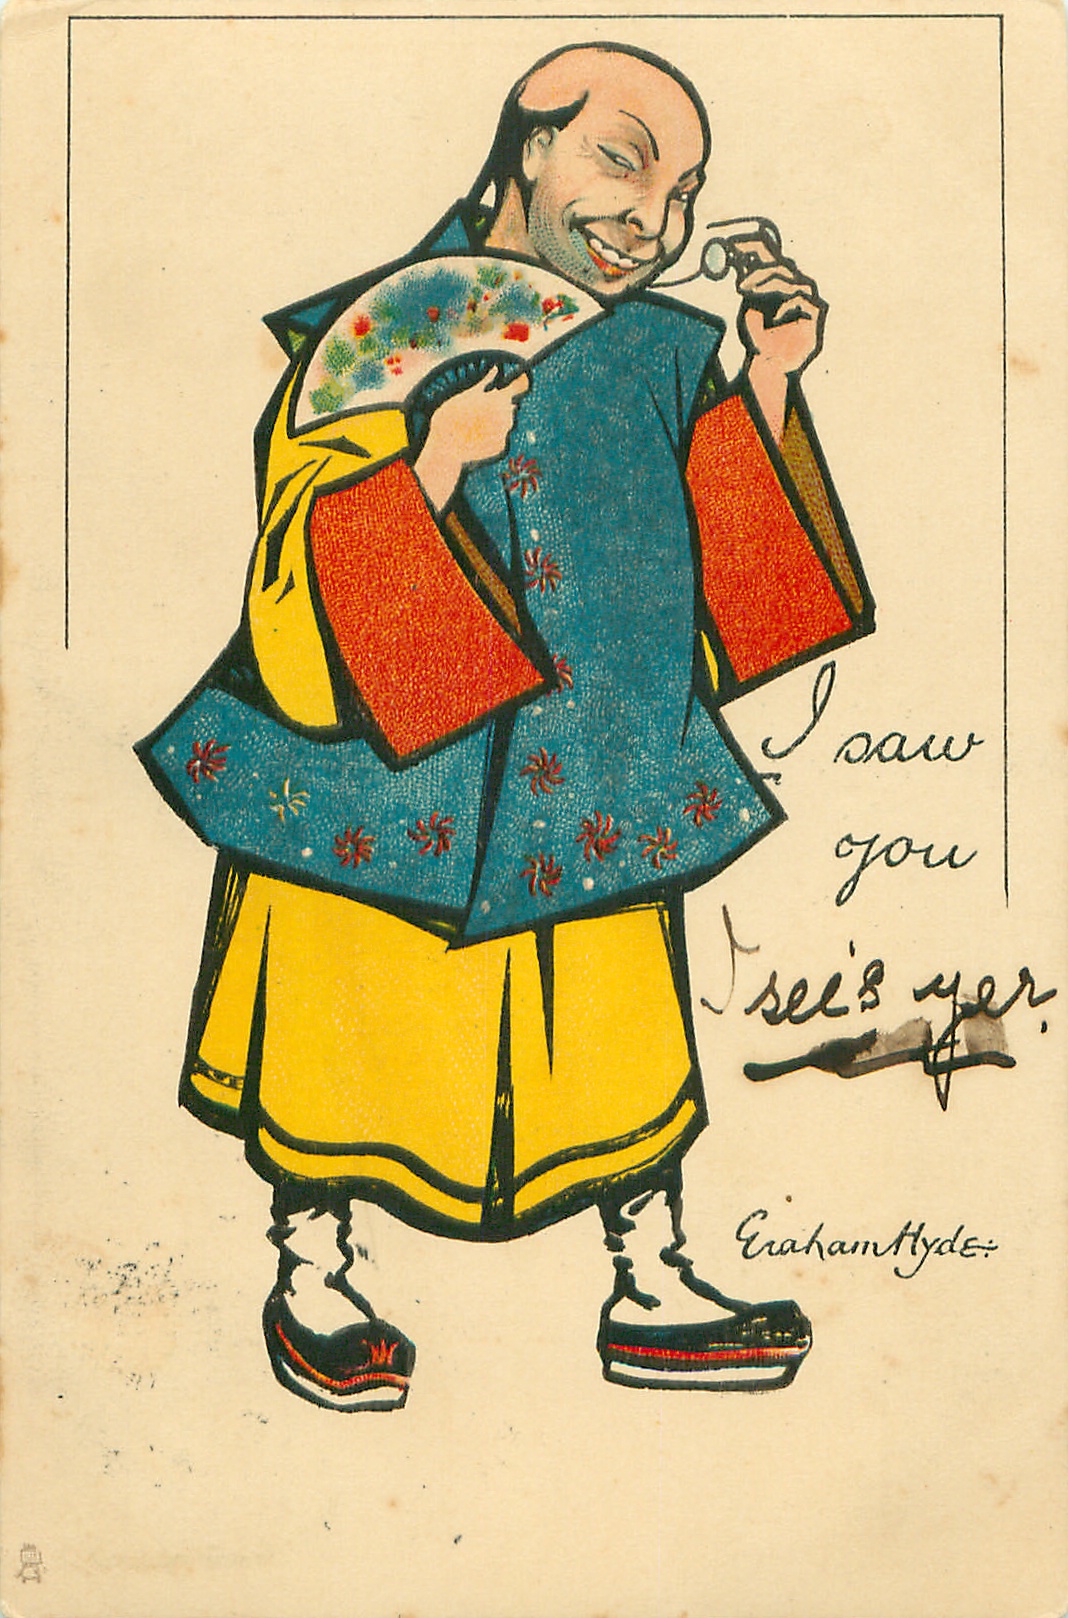 I saw
you
I see's yer.
Graham Hyde: